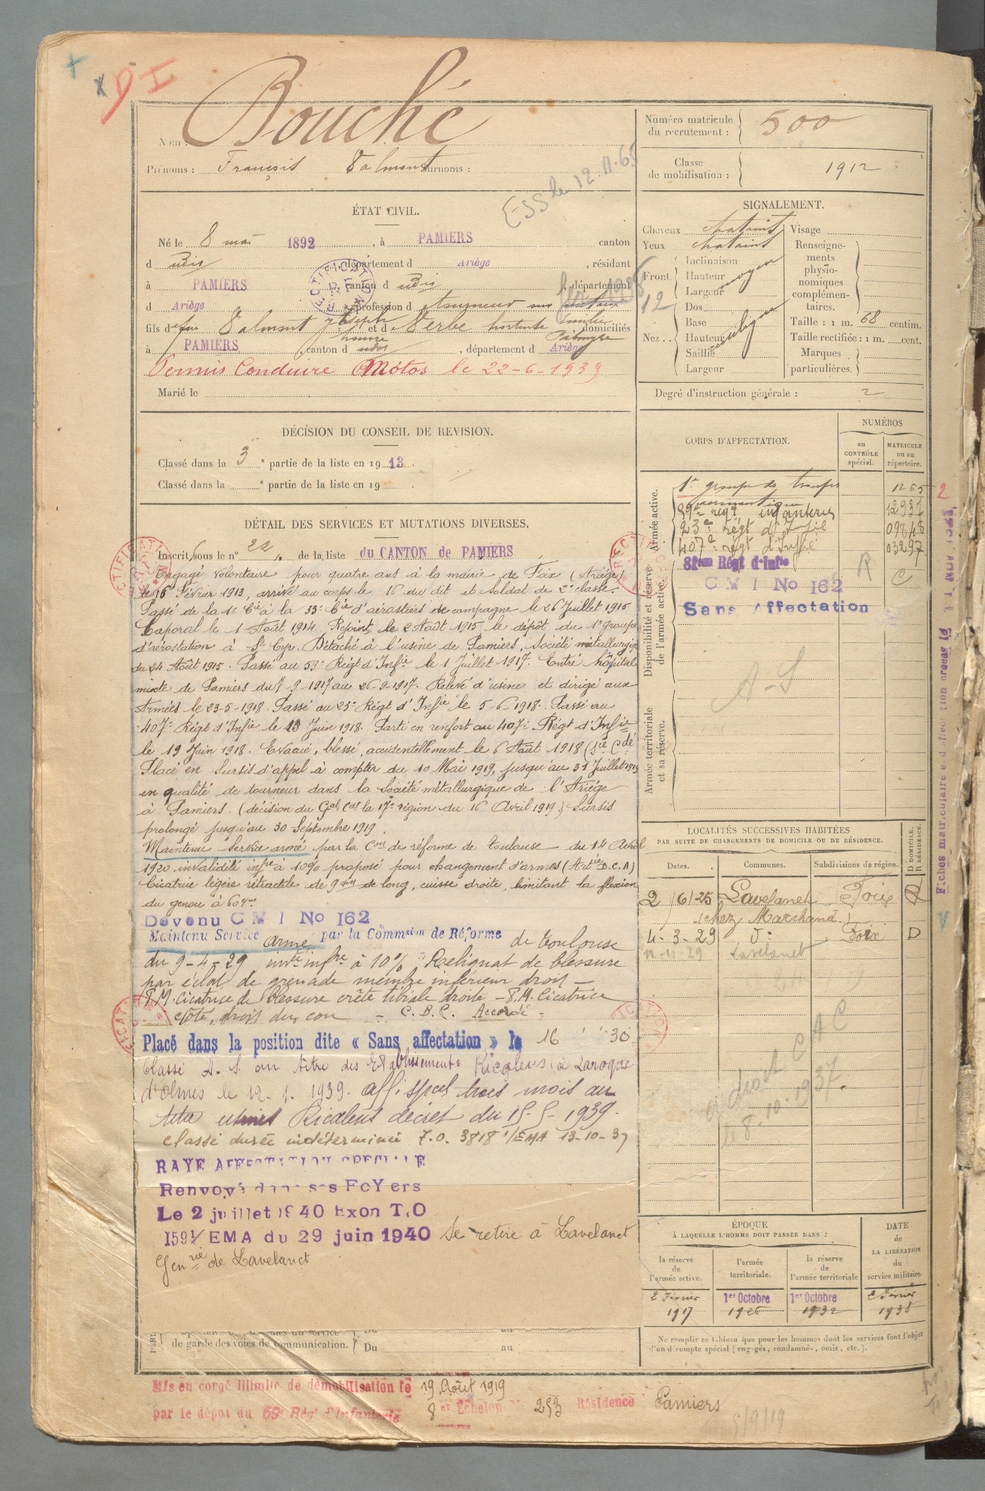 Nom : Bouché
Prénoms : François Valmont Surnoms :
Numéro matricule du recrutement : 500
Classe de mobilisation : 1912
ÉTAT CIVIL.
Né le 8 mai 1892, à PAMIERS canton
d udis, département d Ariège, résidant
à PAMIERS, canton d udis, département
d Ariège, profession d
fils de feu Valmont Joseph et d Verbe hortente domiciliés
à PAMIERS, canton d udis, département d Ariège
Permis Conduire Motos le 22-6-1939
Marié le
SIGNALEMENT.
Cheveux chatains
Yeux chatains
Front Inclinaison
Hauteur moyen
Largeur
Nez Dos
Base
Hauteur
Saillie
Largeur
Visage
Renseignements physionomiques complémentaires.
Taille : 1 m. 68 centim.
Taille rectifiée : 1 m. cent.
Marques particulières.
Degré d'instruction générale : 2
DÉCISION DU CONSEIL DE REVISION.
Classé dans la 3e partie de la liste en 1913.
Classé dans la e partie de la liste en 19
CORPS D'AFFECTATION.
NUMÉROS
au CONTRÔLE spécial.
MATRICULE ou au répertoire.
Armée active.
1er groupe de troupes 1265
23e régt d'Infie
407e régt d'Infie
81ème Régt d'Infie
C M I No 162
Sans Affectation
Disponibilité et réserve de l'armée active.
A-S
Armée territoriale et sa réserve.
DÉTAIL DES SERVICES ET MUTATIONS DIVERSES.
Inscrit sous le n° 22 de la liste du CANTON de PAMIERS
Engagé volontaire pour quatre ans à la mairie de Foix (Ariège)
le 15 Février 1913, arrivé au corps le 16 du dit et soldat de 2e classe.
Passé de la 1e Cie à la 33e Cie d'aérostiers de campagne le 26 Juillet 1915
Caporal le 1 Août 1914. Rejoint le 2 Août 1915 le dépôt du 1er Groupe
d'aérostation à St Cyr. Détaché à l'usine de Pamiers, Société métallurgique
du 24 Août 1915. Passé au 59e Régt d'Infie le 1 Juillet 1917. Entré hôpital
mixte de Pamiers du 7-9-1917 au 26-9-1917. Relevé d'usine et dirigé aux
Armées le 23-5-1918. Passé au 23e Régt d'Infie le 5-6-1918. Passé au
407e Régt d'Infie le 19 Juin 1918. Parti en renfort au 407e Régt d'Infie
le 19 Juin 1918. Evacué, blessé accidentellement le 6 Août 1918
Placé en Sursis d'appel à compter du 10 Mai 1919 jusqu'au 31 Juillet 1919
en qualité de tourneur dans la Société métallurgique de l'Ariège
à Pamiers. (décision du Gal Ct la 17e région du 16 Avril 1919) Sursis
prolongé jusqu'au 30 Septembre 1919.
Maintenu Service armé par la Con de réforme de Toulouse du 14 Avril
1920 invalidité infre à 10% proposé pour changement d'armes
Cicatrice légère rétractile de 9 cm de long, cuisse droite, limitant la flexion
du genou à 60°
Devenu C M I No 162
Maintenu Service armé par la Commsion de Réforme de Toulouse
du 9-4-29 invté infre à 10% Reliquat de blessure
par éclat de grenade membre inférieur droit —
P.M. Cicatrice de blessure crête tibiale droite - P.M. Cicatrice
côté droit du cou - C.B.C. Accordé
Placé dans la position dite « Sans affectation » le 16 30
Classé A. S. au titre des Etablissements Ricalens à Laroque
d'olmes le 12.1.1939. aff. spéct trois mois au
titre usines Ricalens décret du 15-5-1939.
classé durée indéterminée T.O. 3818 1/EMA 13-10-39
RAYE AFFECTATION SPECIALE
Renvoyé dans ses FoYers
Le 2 juillet 1940 Exon T.O
1591/EMA du 29 juin 1940 Se retire à Lavelanet
Genrie de Lavelanet
LOCALITÉS SUCCESSIVES HABITÉES
PAR SUITE DE CHANGEMENTS DE DOMICILE OU DE RÉSIDENCE.
Dates. Communes. Subdivisions de région. D DOMICILE. R RÉSIDENCE.
2/6/25 Lavelanet Foix R
(chez Marchand)
4-3-29 do Foix D
Lavelanet
8.10.1937.
ÉPOQUE
À LAQUELLE L'HOMME DOIT PASSER DANS :
la réserve de l'armée active.
l'armée territoriale.
la réserve de l'armée territoriale
DATE DE LA LIBÉRATION du service militaire.
1er Octobre
1er Octobre
Ne remplir ce tableau que pour les hommes dont les services font l'objet
d'un décompte spécial (engagés, condamnés, omis, etc.).
de garde des voies de communication. Du au
Mis en congé illimité de démobilisation le 19 Août 1919
par le dépôt du 59e Régt d'Infanterie 8e Echelon N° 253 Résidence Pamiers
5/9/19